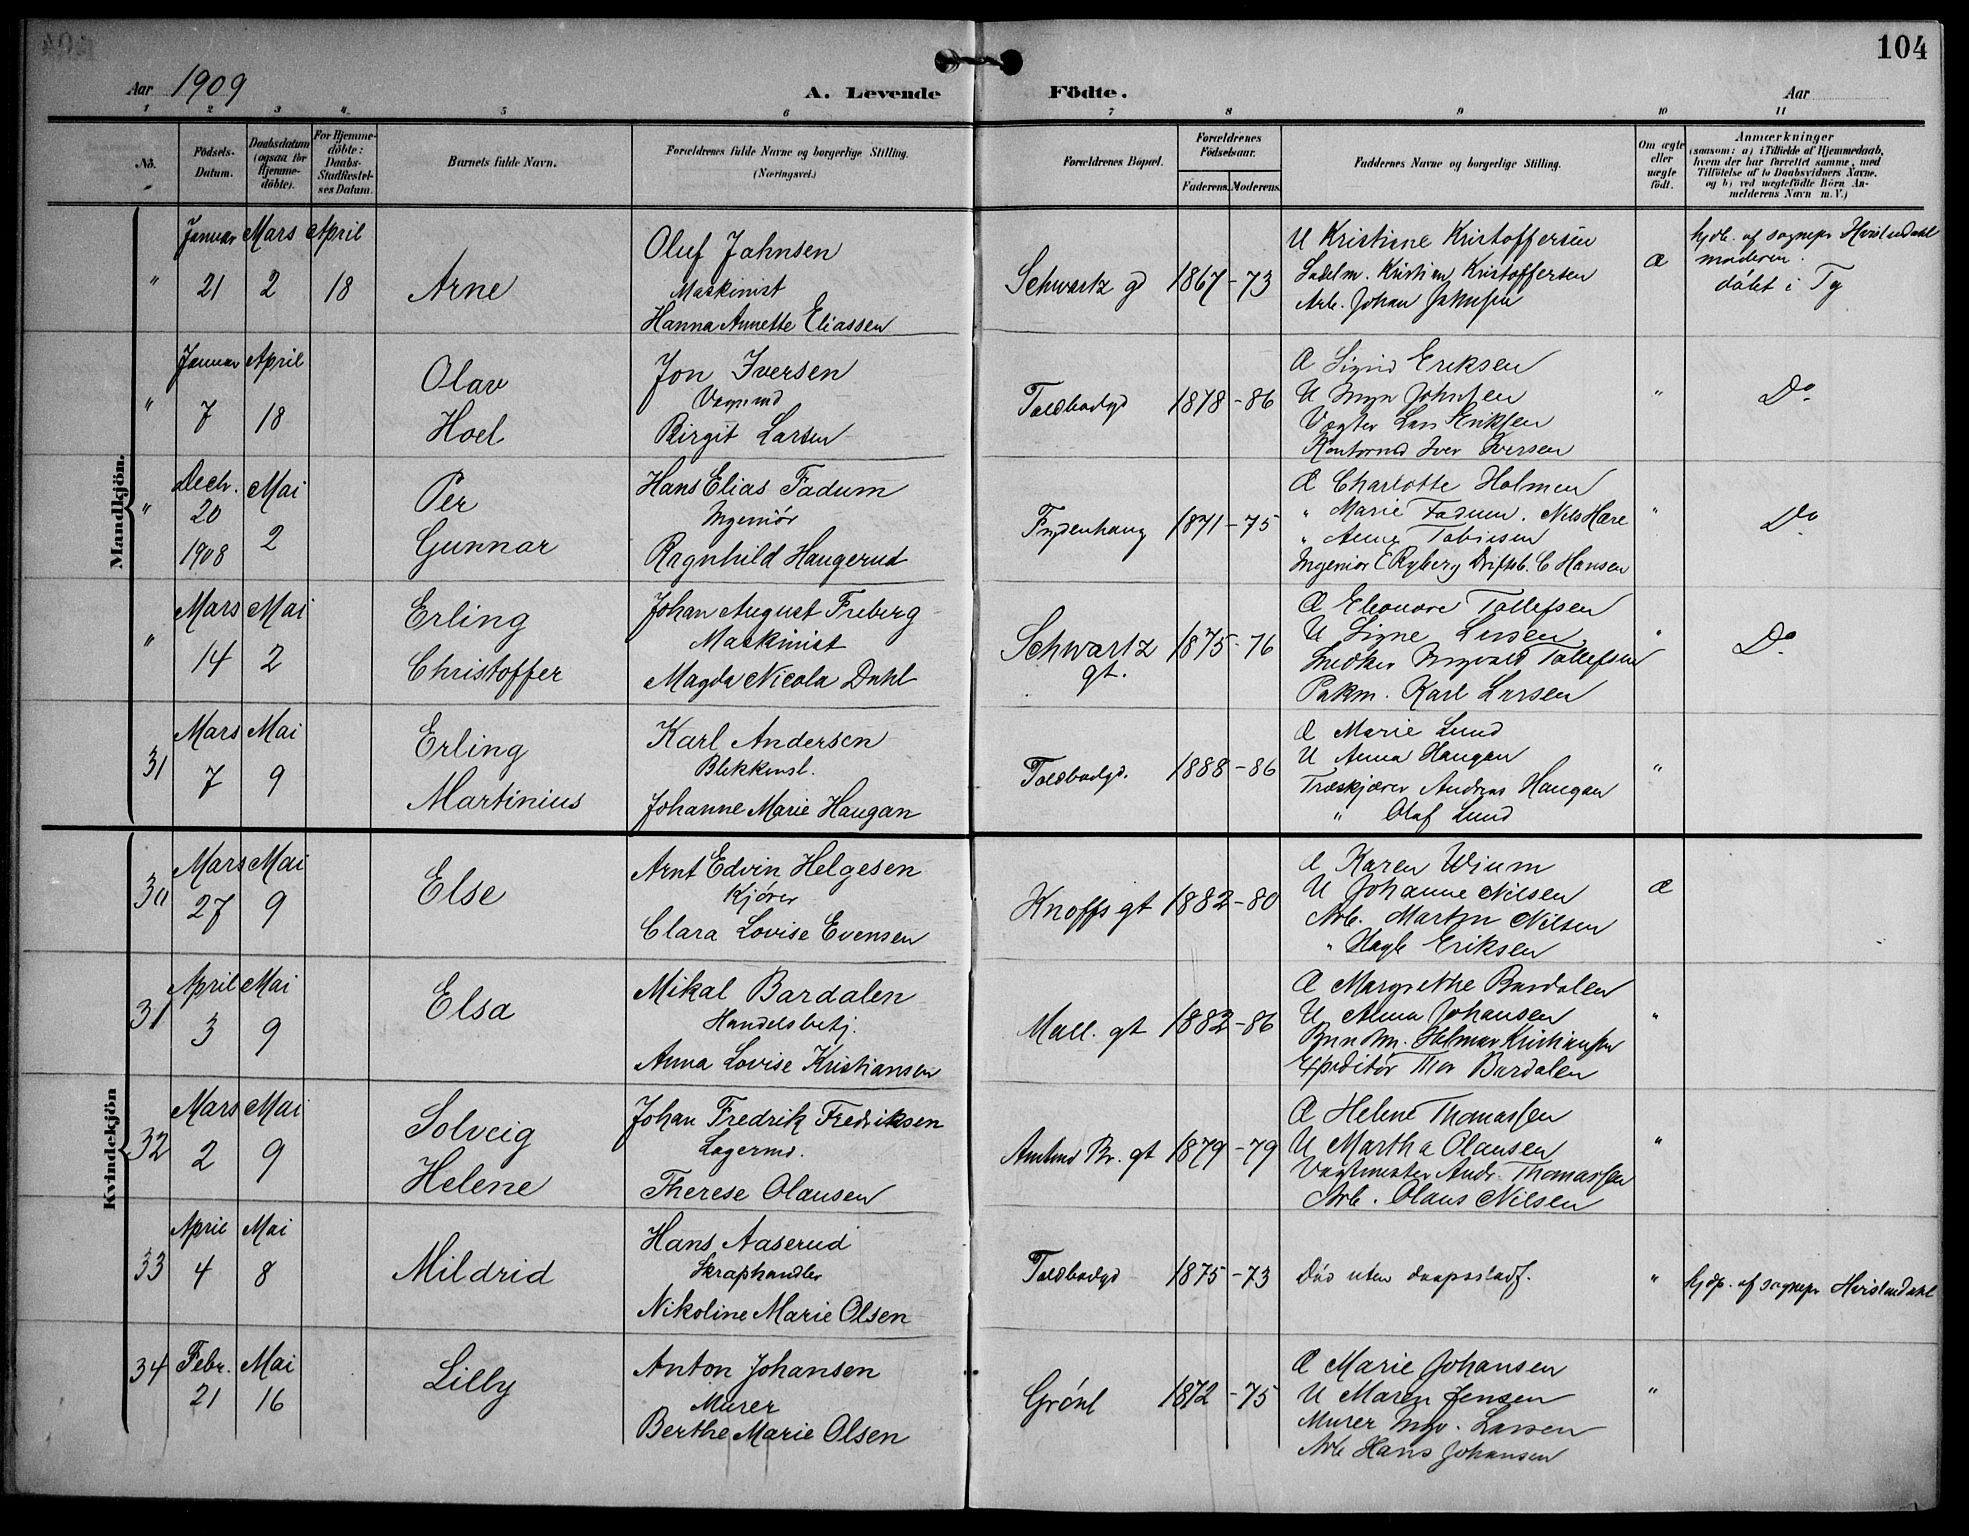 104
Aar 1909
A. Levende Födte.
Aar
1 2 3 4 5 6 7 8 9 10 11
No.
Födsels-Datum.
Daabsdatum (ogsaa for Hjemme-döbte).
For Hjemme-döbte: Daabs-Stadfæstel-ses Datum.
Barnets fulde Navn.
Forældrenes fulde Navne og borgerlige Stilling. (Næringsvei.)
Forældrenes Bopæl.
Forældrenes Födselsaar.
Faderens. Moderens.
Faddernes Navne og borgerlige Stilling.
Om ægte eller uægte födt.
Anmærkninger
(saasom: a) i Tilfælde af Hjemmedaab,
hvem der har forrettet samme, med
Tilföielse af to Daabsvidners Navne.
og b) ved uægtefödte Börn An-
melderens Navn m. V.)
Mandkjön.
"
Januar 21
Mars 2
April 18
Arne
Oluf Jahnsen
Maskinist
Hanna Annette Eliassen
Schwartz gd
1867 - 73
U Kristiane Kristoffersen
Sadelm. Kristian Kristoffersen
Arb. Johan Jahnsen
Æ
hjdb. af sognepr Hvislendahl
moderen
døbt i Tg
"
Januar 7
April 18
Olav
Hoel
Jon Iversen
Vognmd
Birgit Larsen
Toldbodgd
1878 - 86
Æ Sigrid Eriksen
U Johnsen
Vægter Lars Eriksen
Kontormd Iver Iversen
"
Do.
"
Decbr. 20 1908
Mai 2
Per
Gunnar
Hans Elias Fadum
Ingeniør
Ragnhild Haugerud
Frydenhaug
1871 - 75
Æ Charlotte Holmen
" Marie Fadum. Nils Hære
" Anna Tobiesen
Ingeniør E Ryberg Driftsb. C Hansen
"
Do.
"
Mars 14
Mai 2
Erling
Christoffer
Johan August Freberg
Maskinist
Magda Nicola Dahl
Schwartz
gt.
1875 - 76
Æ Eleonore Tollefsen
U Signe Larsen
Snedker Ingvald Tollefsen
Pakm. Karl Larsen
"
Do.
31
Mars 7
Mai 9
Erling
Martinius
Karl Andersen
Blikkensl.
Johanne Marie Haugan
Toldbodgd.
1888 - 86
Æ Marie Lund
U Anna Haugan
Træskjærer Andreas Haugan
" Olaf Lund
"
Kvindekjön
30
Mars 27
Mai 9
Else
Arnt Edvin Helgesen
Kjører
Clara Lovise Evensen
Knoffs gt
1882 - 80
Æ Karen Wium
U Johanne Nilsen
Arb. Martin Nilsen
" Hagb Eriksen
Æ
31
April 3
Mai 9
Elsa
Mikal Bardalen
Handelsbetj.
Anna Lovise Kristiansen
Mall. gt
1882 - 86
Æ Margrethe Bardalen
U Alma Johansen
Helmar Kristiansen
Expeditør Thor Bardalen
"
32
Mars 2
Mai 9
Solveig
Helene
Johan Fredrik Fredriksen
Lagermd.
Therese Olausen
Amtmd Bl. gt
1879 - 79
Æ Helene Thomassen
U Martha Olausen
Vagtmester Andr. Thomassen
Arb. Olaus Nilsen
"
33
April 4
Mai 8
Mildrid
Hans Aaserud
Skraphandler
Nikoline Marie Olsen
Toldbodgd
1875 - 73
Død uten daapsstadf.
"
hjdp. af sognepr Hvislendahl
34
Febr. 21
Mai 16
Lilly
Anton Johansen
Murer
Berthe Marie Olsen
Grønl
1872 - 75
Æ Marie Johansen
U Maren Jensen
Murer Ingv. Larsen
Arb Hans Johansen
"